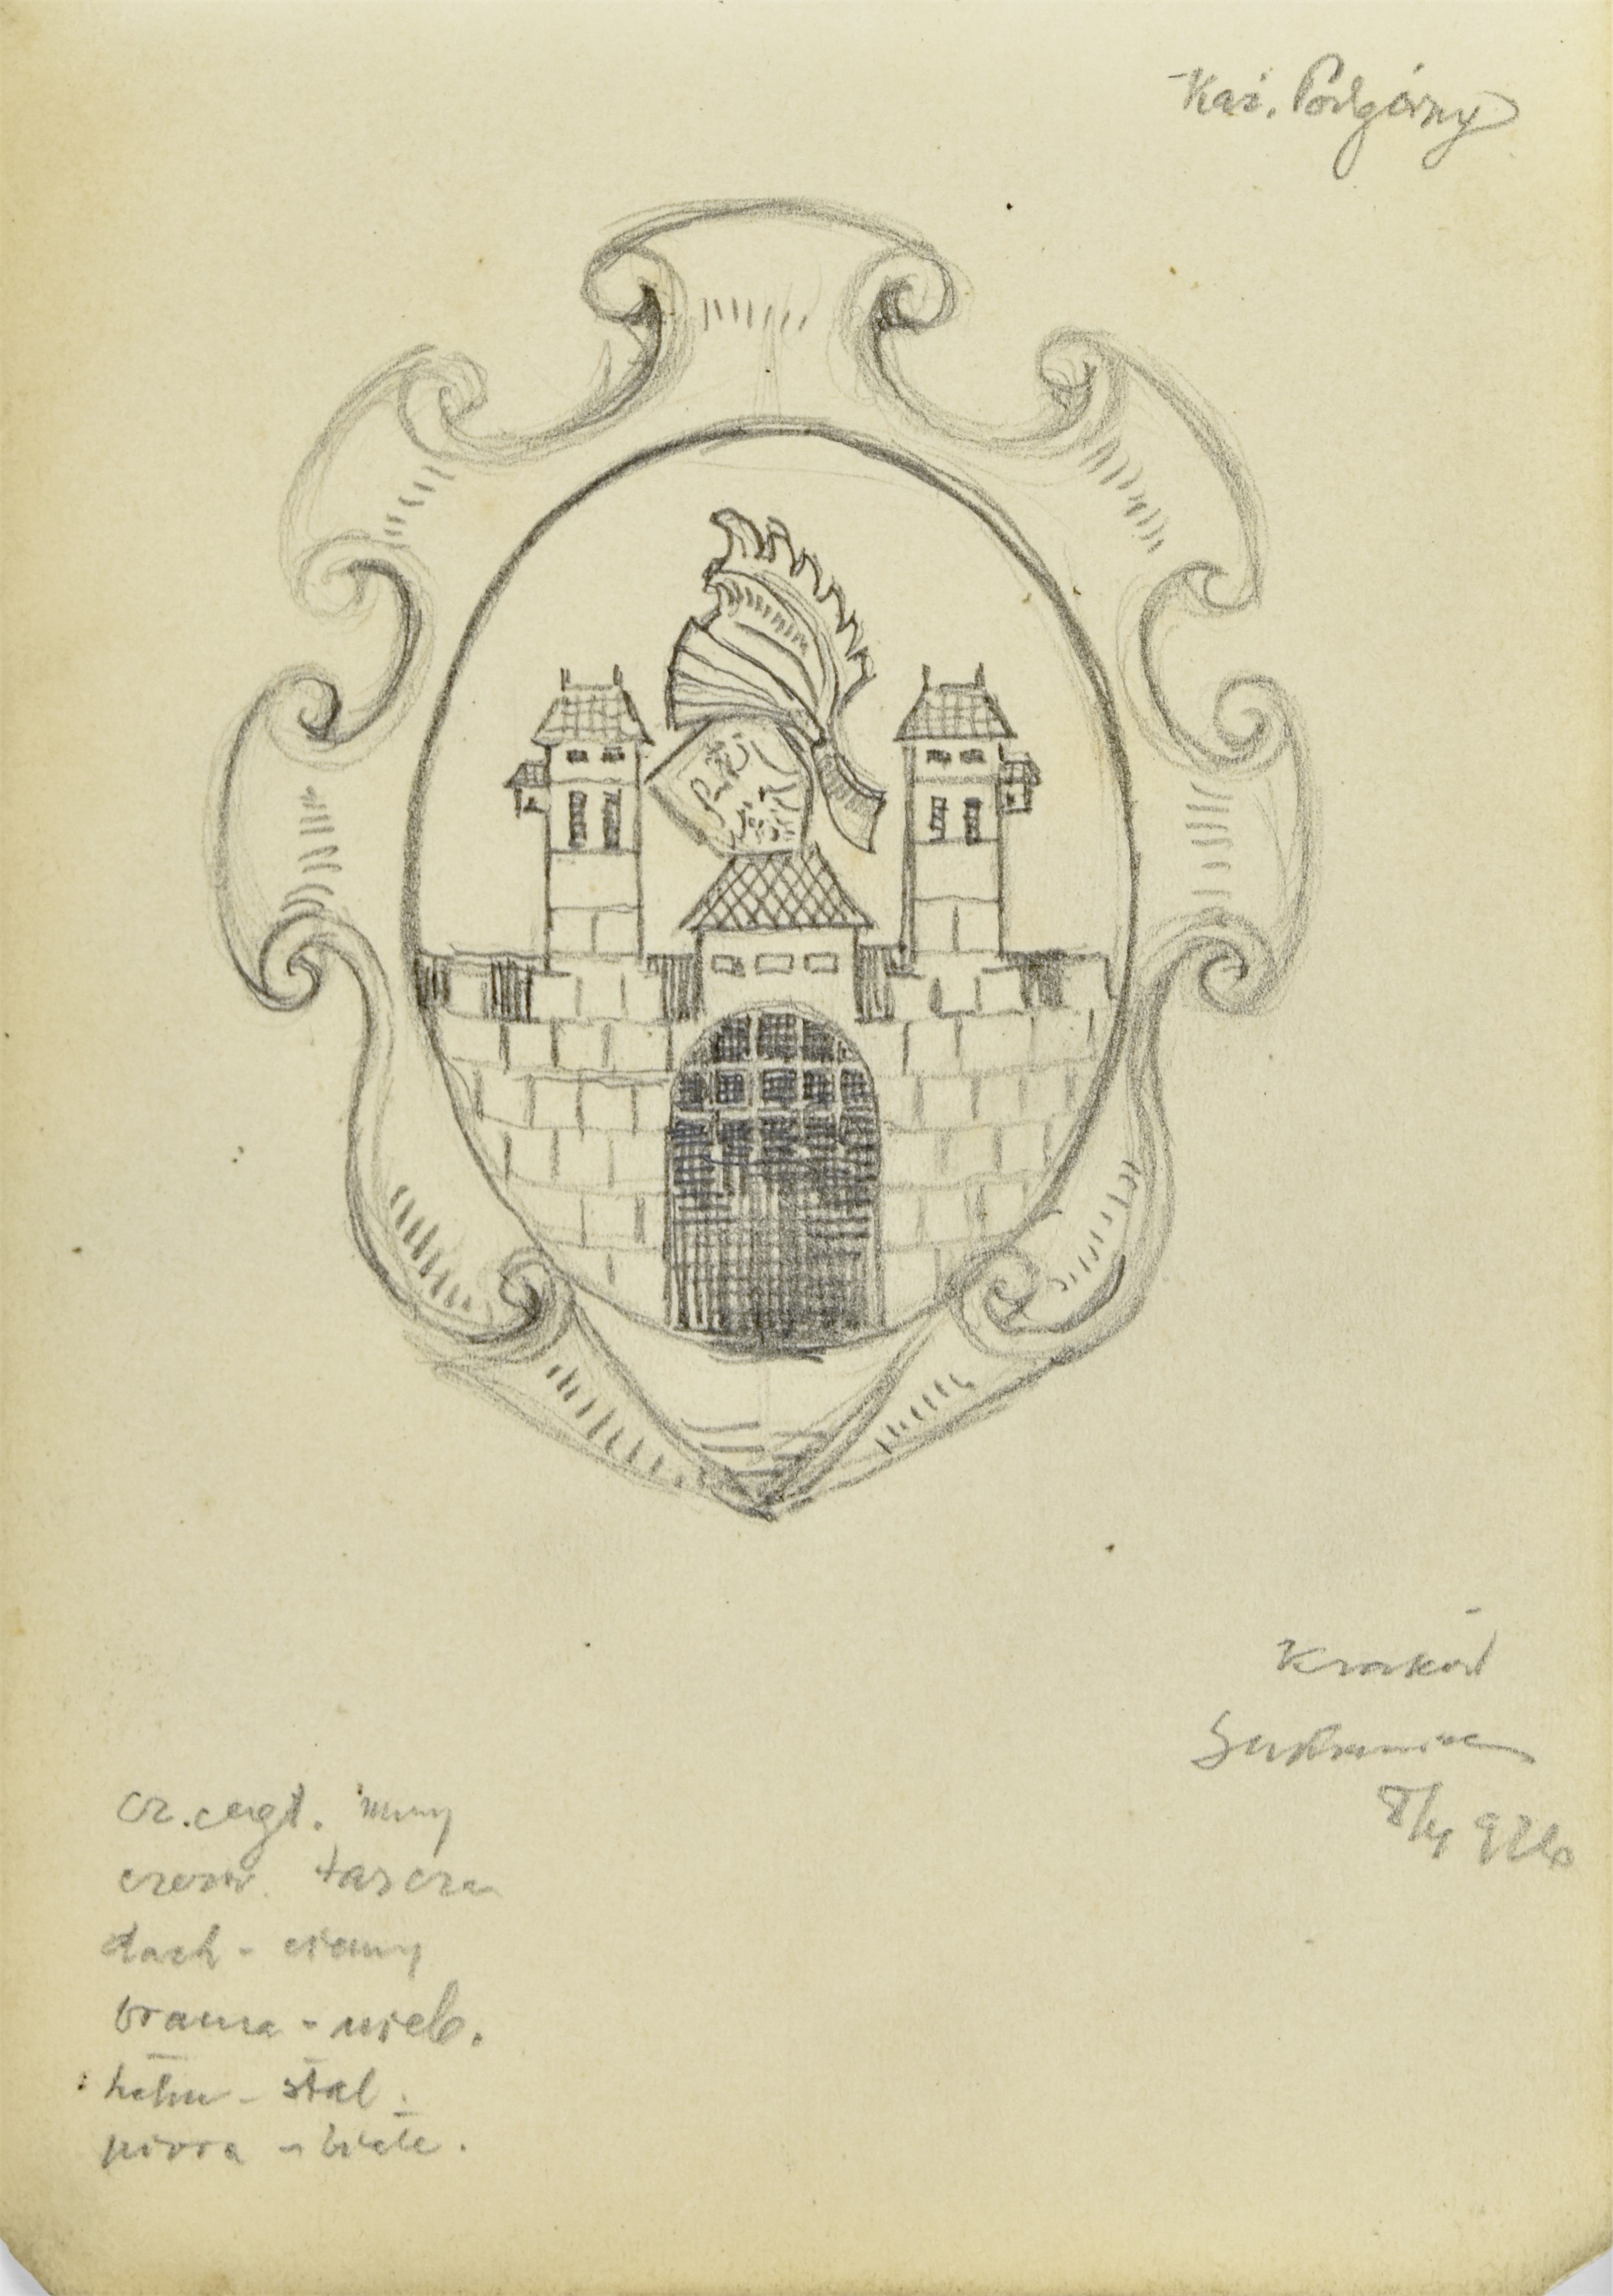 Kaź. Podgórny
Kraków
Sukiennice
8/4 926
cz. cegl. mury
czerw. tarcza
dach - ciemny
brama - nieb.
hełm - stal.
pióra - białe.